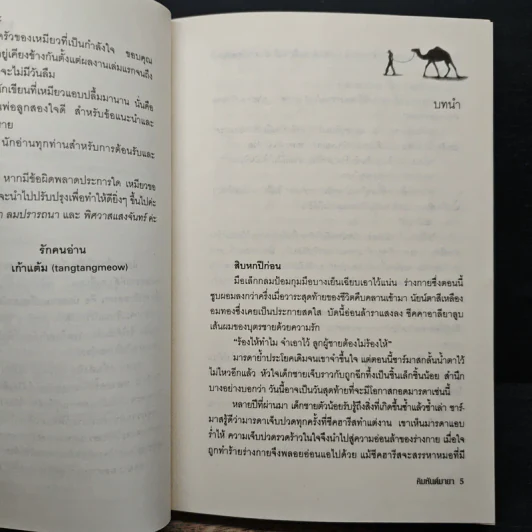 ครัวของเหมียวที่เป็นกำลังใจ ขอบคุณ
อยู่เคียงข้างกันตั้งแต่ผลงานเล่มแรกจนถึง
จะไม่มีวันลืม
นักเขียนที่เหมียวแอบปลื้มมานาน นั่นคือ
แม่ลูกสองใจดี สำหรับข้อแนะนำและ
นักอ่านทุกท่านสำหรับการต้อนรับและ
หากมีข้อผิดพลาดประการใด เหมียวขอ
จะนำไปปรับปรุงเพื่อทำให้ดียิ่งๆ ขึ้นไปค่ะ
ลมปรารถนา และ พิศวาสแสงจันทร์ ค่ะ
รักคนอ่าน
เก้าแต้ม (tangtangmeow)
บทนำ
สิบหกปีก่อน
มือเล็กกลมป้อมกุมมือบางเย็นเฉียบเอาไว้แน่น ร่างกายซึ่งตอนนี้
ซูบผอมลงกว่าครึ่งเมื่อวาระสุดท้ายของชีวิตคืบคลานเข้ามา นัยน์ตาสีเหลือง
อมทองซึ่งเคยเป็นประกายสดใส บัดนี้อ่อนล้าราแสงลง ชีคคาอาลียาลูบ
เส้นผมของบุตรชายด้วยความรัก
“ร้องไห้ทำไม จำเอาไว้ ลูกผู้ชายต้องไม่ร้องไห้”
มารดาย้ำประโยคเดิมจนเขาจำขึ้นใจ แต่ตอนนี้ชาร์มาสกลั้นน้ำตาไว้
ไม่ไหวอีกแล้ว หัวใจเด็กชายเจ็บราวกับถูกฉีกทึ้งเป็นชิ้นเล็กชิ้นน้อย สำนึก
บางอย่างบอกว่า วันนี้อาจเป็นวันสุดท้ายที่จะมีโอกาสกอดมารดาเช่นนี้
หลายปีที่ผ่านมา เด็กชายตัวน้อยรับรู้ถึงสิ่งที่เกิดขึ้นซ้ำแล้วซ้ำเล่า ชาร์-
มาสรู้ดีว่ามารดาเจ็บปวดทุกครั้งที่ชีคฮารีสทำแต่งงาน เขาเห็นมารดาแอบ
ร่ำไห้ ความเจ็บปวดรวดร้าวในใจจึงนำไปสู่ความอ่อนล้าของร่างกาย เมื่อใจ
ถูกทำร้ายร่างกายจึงพลอยอ่อนแอไปด้วย แม้ชีคฮารีสจะสรรหาหมอที่มี
คิมหันต์มายา 5